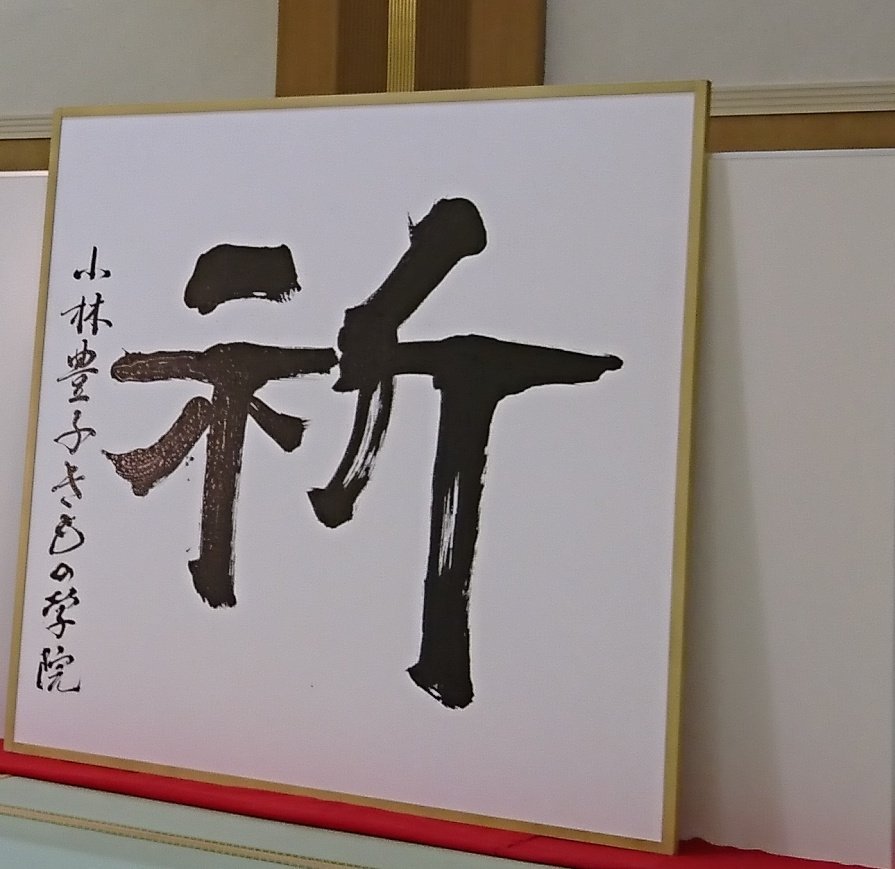 祈
小林豊子きもの学院